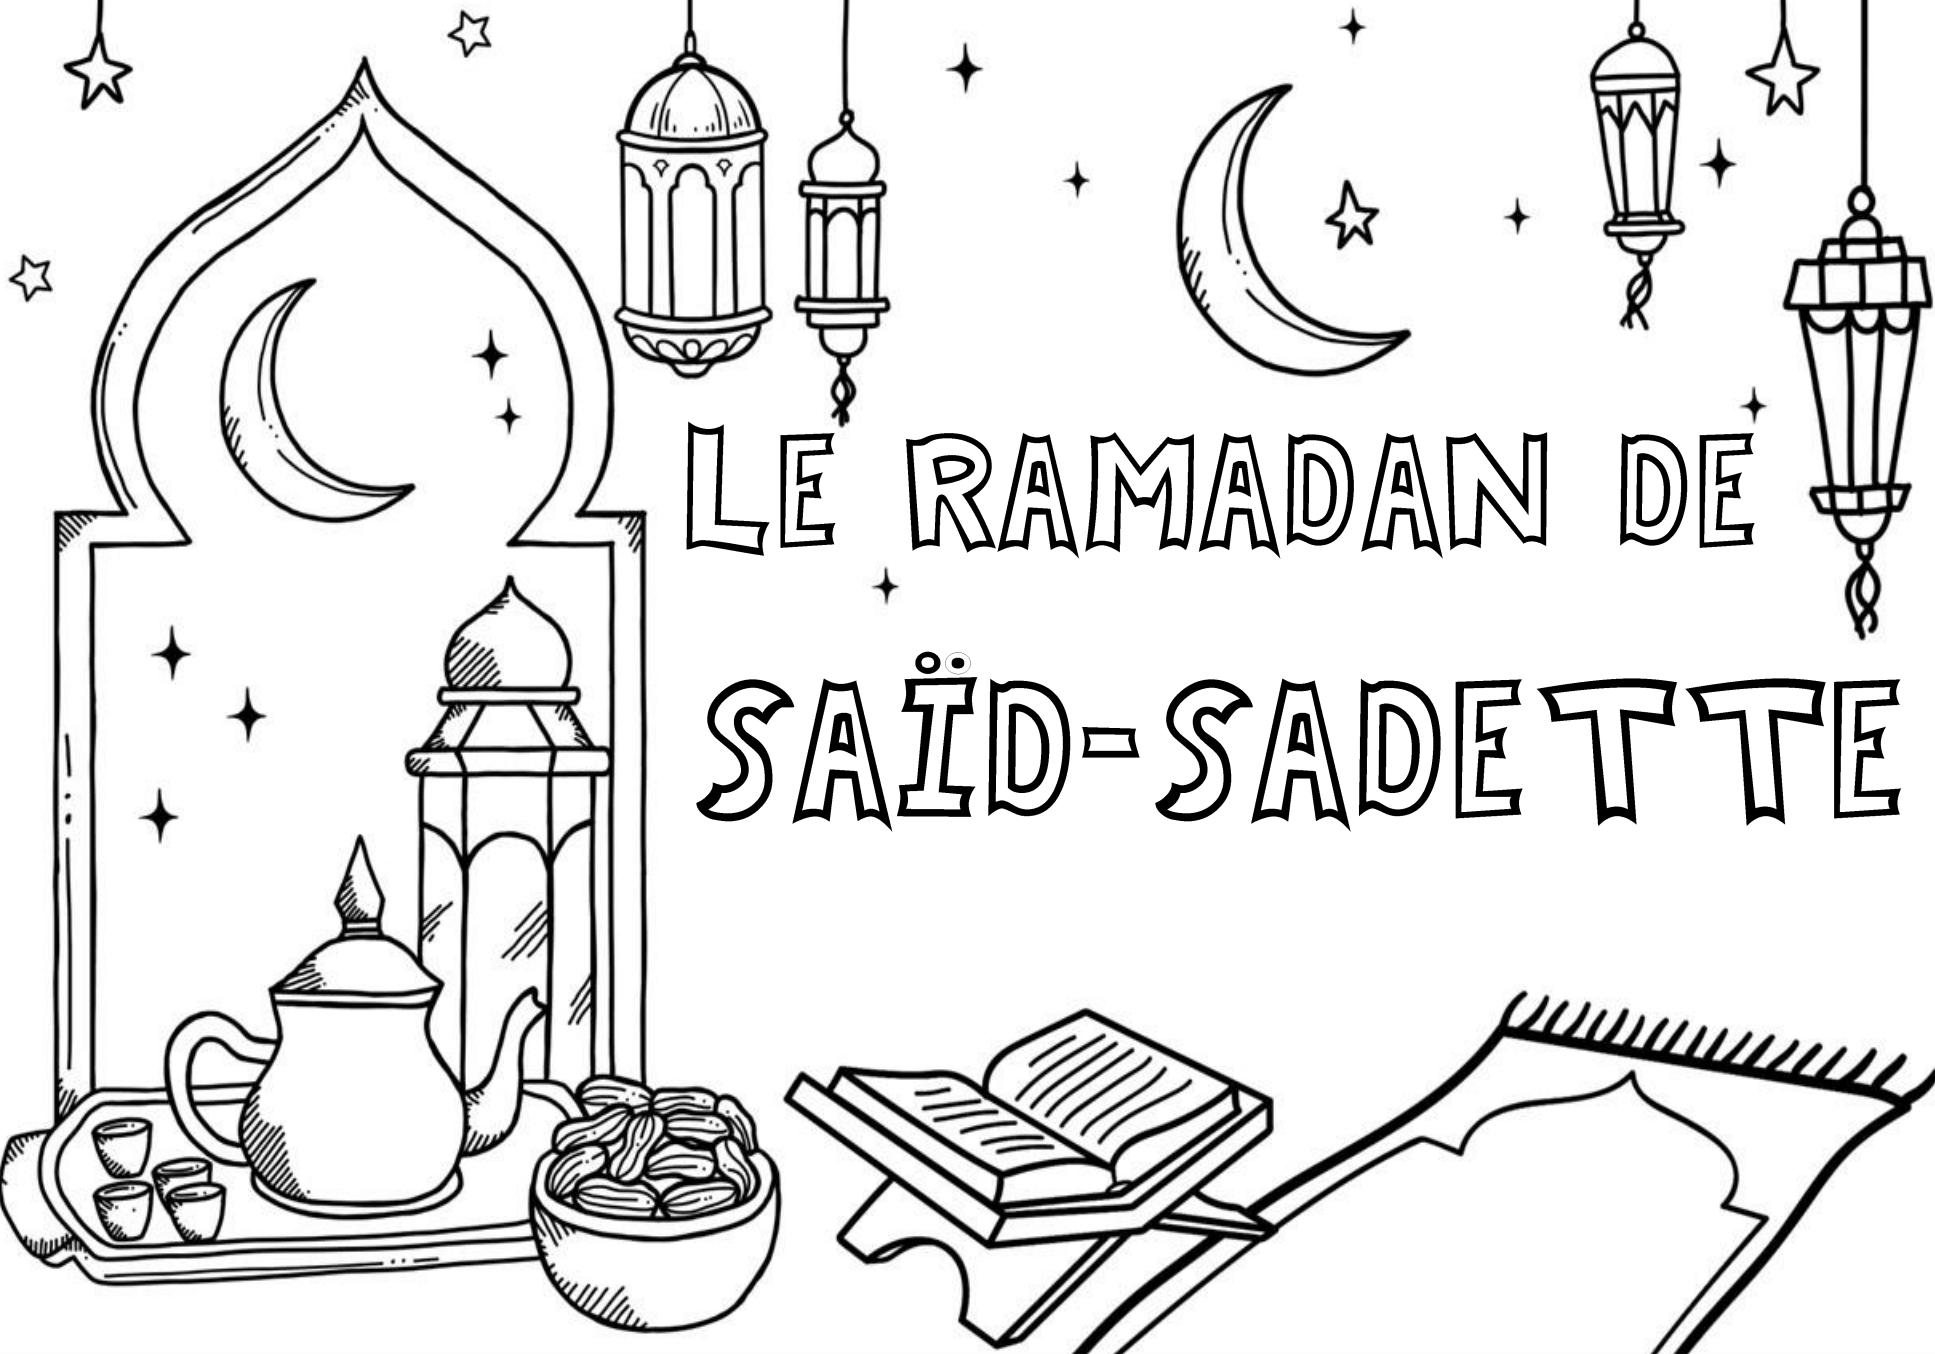 LE RAMADAN DE
SAÏD-SADETTE